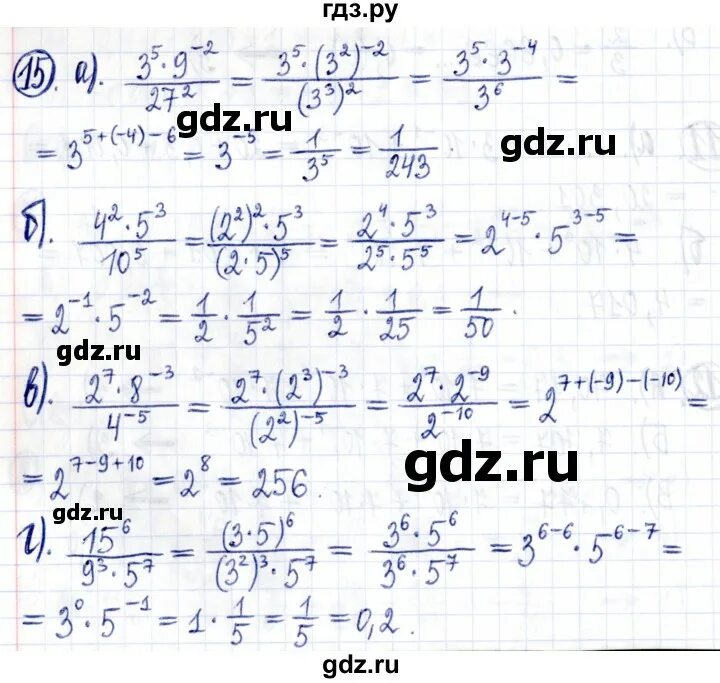 гдз.ру
15. а). 3⁵·9⁻²/27² = 3⁵·(3²)⁻²/(3³)² = 3⁵·3⁻⁴/3⁶ =
gdz.ru gdz.ru
= 3⁵⁺⁽⁻⁴⁾⁻⁶ = 3⁻⁵ = 1/3⁵ = 1/243.
б). 4²·5³/10⁵ = (2²)²·5³/(2·5)⁵ = 2⁴·5³/2⁵·5⁵ = 2⁴⁻⁵·5³⁻⁵ =
= 2⁻¹·5⁻² = 1/2 · 1/5² = 1/2 · 1/25 = 1/50.
gdz.ru
в). 2⁷·8⁻³/4⁻⁵ = 2⁷·(2³)⁻³/(2²)⁻⁵ = 2⁷·2⁻⁹/2⁻¹⁰ = 2⁷⁺⁽⁻⁹⁾⁻⁽⁻¹⁰⁾ =
= 2⁷⁻⁹⁺¹⁰ = 2⁸ = 256.
gdz.ru
gdz.ru
г). 15⁶/9³·5⁷ = (3·5)⁶/(3²)³·5⁷ = 3⁶·5⁶/3⁶·5⁷ = 3⁶⁻⁶·5⁶⁻⁷ =
= 3⁰·5⁻¹ = 1·1/5 = 1/5 = 0,2.
gdz.ru